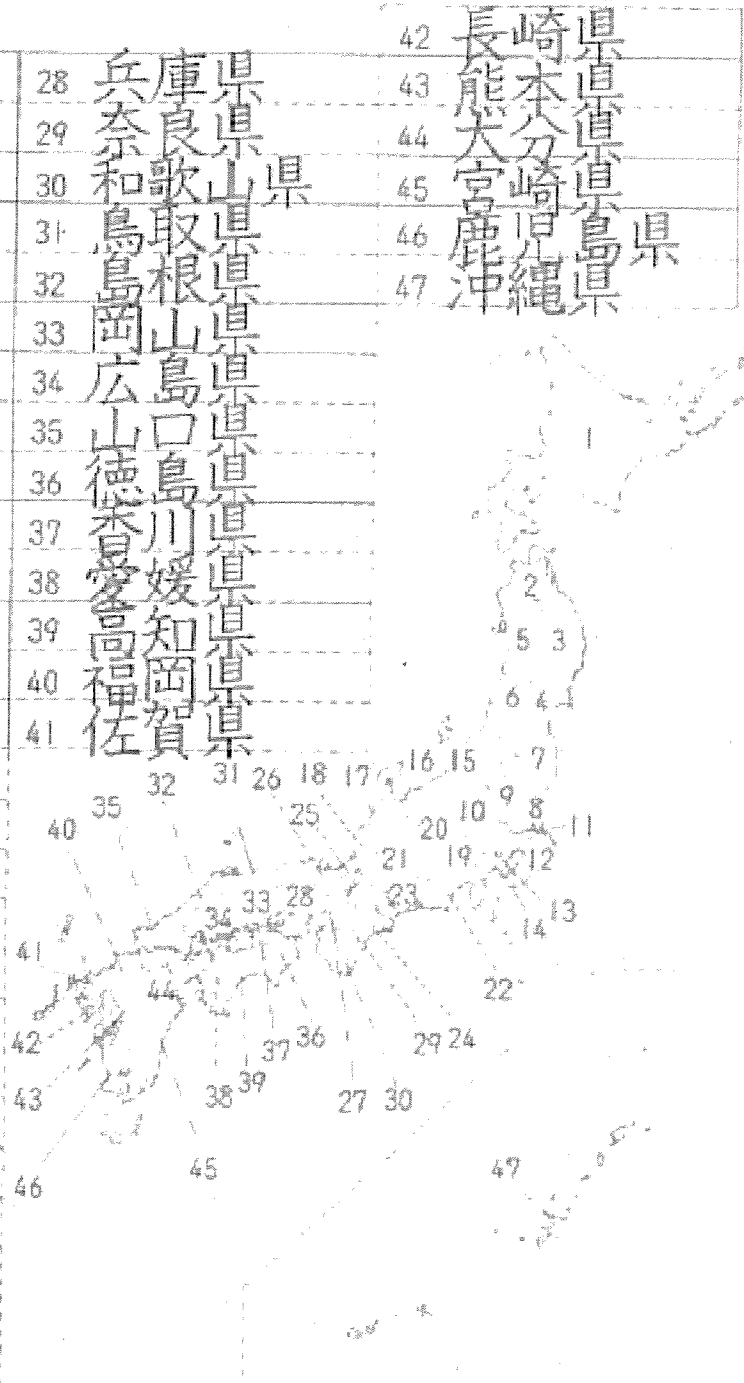 28 兵庫県
29 奈良県
30 和歌山県
31 鳥取県
32 島根県
33 岡山県
34 広島県
35 山口県
36 徳島県
37 香川県
38 愛媛県
39 高知県
40 福岡県
41 佐賀県
42 長崎県
43 熊本県
44 大分県
45 宮崎県
46 鹿児島県
47 沖縄県
1
2
5 3
6 4
16 15 7
32 31 26 18 17
35 25 10 9 8 11
40 20
21 19 12
33 28 23 13
34 14
41
44 22
42 37 36 29 24
43 38 39 27 30
46 45 47